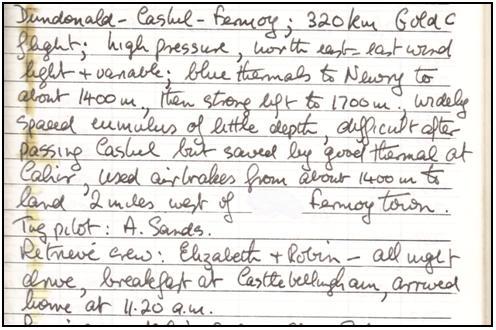 Dundonald - Cashel - Fermoy; 320km Gold C
flight; high pressure, north east = east wind
light + variable; blue thermals to Newry to
about 1400 m., then strong lift to 1700 m., widely
spaced cumulus of little depth, difficult after
passing Cashel but saved by good thermal at
Cahir, used airbrakes from about 1400 m to
land 2 miles west of Fermoy town.
Tug pilot: A. Sands.
Retrieve crew: Elizabeth + Robin - all night
drive, breakfast at Castlebellingham, arrived
home at 11.20 a.m.